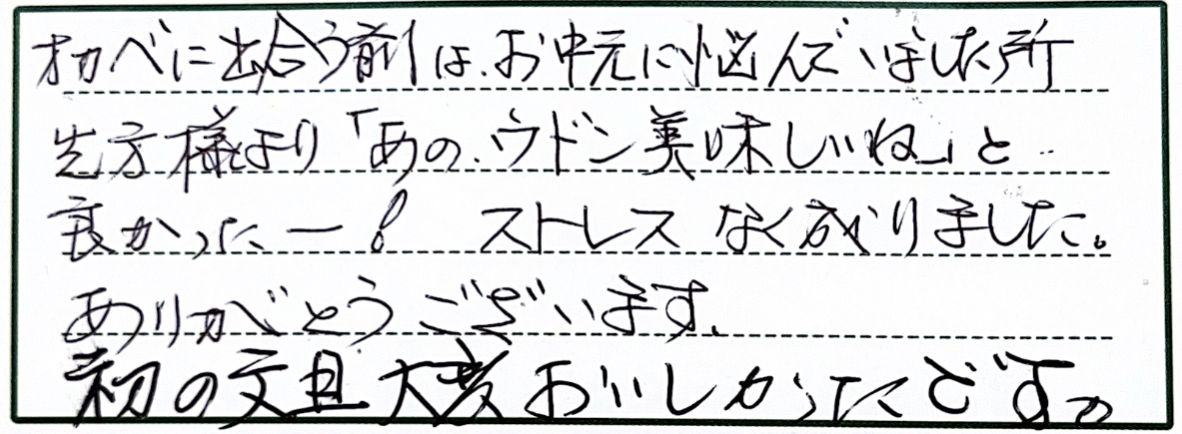 オカベに出合う前は、お中元に悩んでいました所
先方様より「あの、ウドン美味しいね」と
良かったー! ストレスなく成りました。
ありがとうございます。
初の文旦大変おいしかったです。